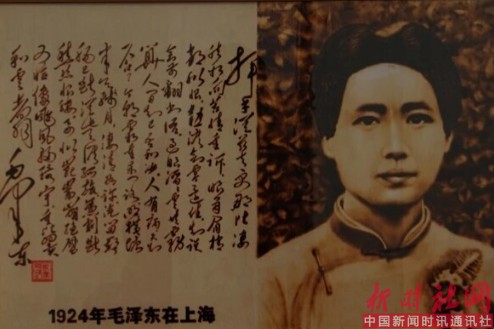 挥手从兹去更那堪凄
然相向苦情重诉眼角眉梢
都似恨热泪欲零还住知误
会前翻书语过眼滔滔云共雾
算人间知己吾和汝人有病天知
否今朝霜重东门路照横塘
半天残月凄清如许汽笛一声
肠已断从此天涯孤旅凭割断
愁丝恨缕要似昆仑崩绝壁
又恰像台风扫寰宇重比翼
和云翥
毛泽东
1924年毛泽东在上海
中国新闻时讯通讯社